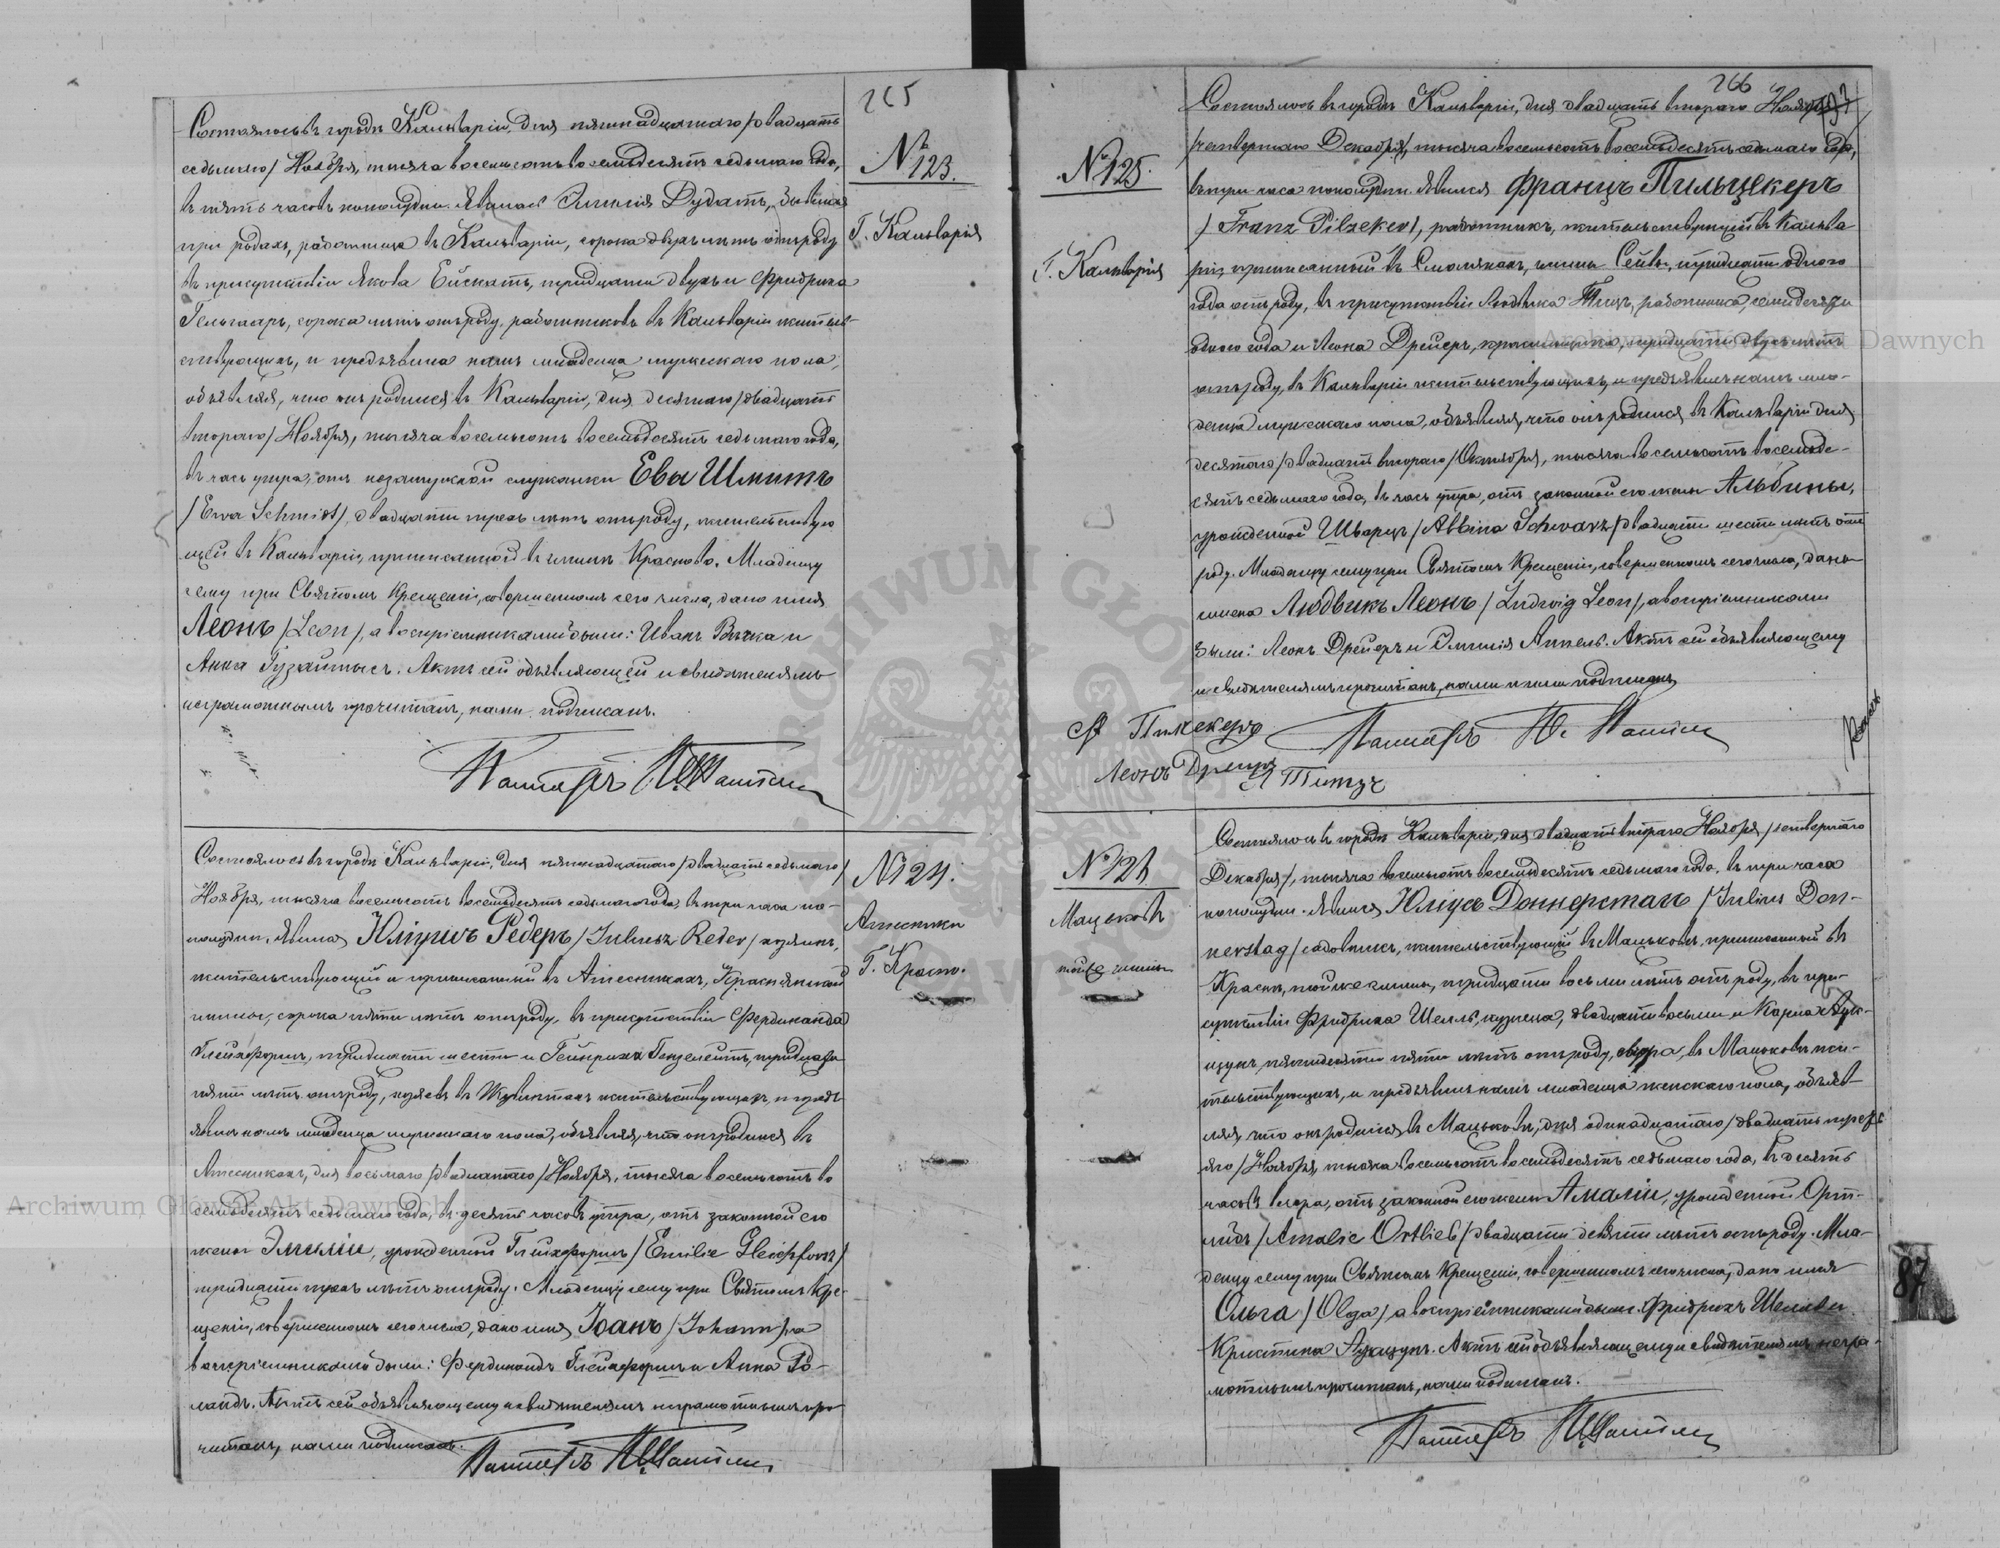 265
Состоялось въ городѣ Кальваріи, дня пятнадцатаго /двадцать
седьмаго/ Ноября, тысяча восемьсотъ восемьдесятъ седьмаго года,
въ пять часовъ пополудни. Явилась Эмилія Дудатъ, бывшая
при родахъ, работница въ Кальваріи, сорока двухъ лѣтъ отъ роду
въ присутствіи Якова Ейскатъ, тридцати двухъ и Фридриха
сорока лѣтъ отъ роду, работниковъ въ Кальваріи житель-
ствующихъ, и предъявила намъ младенца мужескаго пола,
объявляя, что онъ родился въ Кальваріи, дня десятаго /двадцать
втораго/ Ноября, тысяча восемьсотъ восемьдесятъ седьмаго года,
въ часъ утра, отъ незамужней служанки Евы Шмитъ
/Ewa Schmidt/, двадцати трехъ лѣтъ отъ роду, жительствую
щей въ Кальваріи, приписанной въ гминѣ Красново. Младенцу
сему при Святомъ Крещеніи, совершенномъ сего числа, дано имя
Леонъ /Leon/, а воспріемниками были: Иванъ и
Анна Гузайтысъ. Актъ сей объявляющей и свидѣтелямъ
неграмотнымъ прочитанъ, нами подписанъ.
Пасторъ
№ 123.
Г. Кальварія
Состоялось въ городѣ Кальваріи, дня пятнадцатаго /двадцать седьмаго/
Ноября, тысяча восемьсотъ восемьдесятъ седьмаго года, въ три часа по-
полудни. Явился Юліусъ Редеръ /Juliusz Reder/ хозяинъ,
жительствующій и приписанный въ Атесникахъ, Красненской
гмины, сорока пяти лѣтъ отъ роду, въ присутствіи Фердинанда
Глейхфоршъ, тридцати шести и Гейнриха тридцати
пяти лѣтъ отъ роду, хозяевъ въ жительствующихъ, и предъ
явилъ намъ младенца мужескаго пола, объявляя, что онъ родился въ
Атесникахъ, дня восьмаго /двадцатаго/ Ноября, тысяча восемьсотъ во
семьдесятъ седьмаго года, въ десять часовъ утра, отъ законной его
жены Эмиліи, урожденной Глейхфоршъ /Emilie Gleichforsz/
тридцати трехъ лѣтъ отъ роду. Младенцу сему при Святомъ Кре-
щеніи, совершенномъ сего числа, дано имя Іоанъ /Johann/, а
воспріемниками были: Фердинандъ Глейхфоршъ и Анна Ро-
ландъ. Актъ сей объявляющему и свидѣтелямъ неграмотнымъ про-
читанъ, нами подписанъ.
Пасторъ
№ 124.
Атесники
Г. Красн.
266
Состоялось въ городѣ Кальваріи, дня двадцать втораго Ноября
/четвертаго Декабря/, тысяча восемьсотъ восемьдесятъ седьмаго года,
въ три часа пополудни. Явился Францъ Пильцекеръ
/Franz Pilzeker/, работникъ, жительствующій въ Кальва
ріи, приписанный въ Смолянахъ, гмины Сейвы, тридцати одного
года отъ роду, въ присутствіи Людвика Тицъ, работника, семидесяти
одного года и Леона Дрейеръ, тридцати двухъ лѣтъ
отъ роду, въ Кальваріи жительствующихъ, и предъявилъ намъ мла-
денца мужескаго пола, объявляя, что онъ родился въ Кальваріи дня
десятаго /двадцать втораго/ Октября, тысяча восемьсотъ восемьде-
сятъ седьмаго года, въ часъ утра, отъ законной его жены Альбины,
урожденной Шварцъ /Albina Schwarz/ двадцати шести лѣтъ отъ
роду. Младенцу сему при Святомъ Крещеніи, совершенномъ сего числа, даны
имена Людвикъ Леонъ /Ludwig Leon/, а воспріемниками
были: Леонъ Дрейеръ и Эмилія Аппель. Актъ сей объявляющему
и свидѣтелямъ прочитанъ, нами и ими подписанъ
Ф Пилцекеръ
Пасторъ
Леонъ Дрейеръ
Л Титцъ
№ 125.
Г. Кальварія
Состоялось въ городѣ Кальваріи, дня двадцать втораго Ноября /четвертаго
Декабря/, тысяча восемьсотъ восемьдесятъ седьмаго года, въ три часа
пополудни. Явился Юліусъ Доннерстагъ /Julius Don-
nerstag/ садовникъ, жительствующій въ Мацьковѣ, приписанный въ
Краснѣ, той же гмины, тридцати восьми лѣтъ отъ роду, въ при-
сутствіи Фридриха Шелль, кузнеца, двадцати восьми и Карла
пятидесяти пяти лѣтъ отъ роду, въ Мацьковѣ жи-
тельствующихъ, и предъявилъ намъ младенца женскаго пола, объяв
ляя, что онъ родился въ Мацьковѣ, дня одинадцатаго /двадцать треть
яго/ Ноября, тысяча восемьсотъ восемьдесятъ седьмаго года, въ десять
часовъ вечера, отъ законной его жены Амаліи, урожденной Орт-
либъ /Amalie Ortlieb/ двадцати девяти лѣтъ отъ роду. Мла-
денцу сему при Святомъ Крещеніи, совершенномъ сего числа, дано имя
Ольга /Olga/, а воспріемниками были: Фридрихъ Шелль и
Кристина Актъ сей объявляющему и свидѣтелямъ негра-
мотнымъ прочитанъ, нами подписанъ.
Пасторъ
№ 126
Мацьковъ
той же гмины
87
Archiwum Główne Akt Dawnych
Archiwum Główne Akt Dawnych
ARCHIWUM GŁÓWNE AKT DAWNYCH